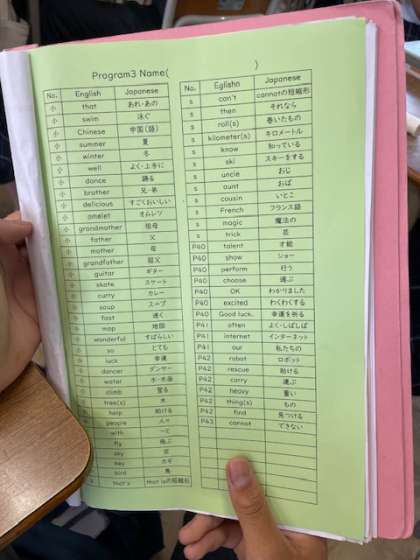 Program3 Name( )
No. English Japanese
小 that あれ・あの
小 swim 泳ぐ
小 Chinese 中国(語)
小 summer 夏
小 winter 冬
小 well よく・上手に
小 dance 踊る
小 brother 兄・弟
小 delicious すごくおいしい
小 omelet オムレツ
小 grandmother 祖母
小 father 父
小 mother 母
小 grandfather 祖父
小 guitar ギター
小 skate スケート
小 curry カレー
小 soup スープ
小 fast 速く
小 map 地図
小 wonderful すばらしい
小 so とても
小 luck 幸運
小 dancer ダンサー
小 water
小 climb 登る
小 tree(s) 木
小 help 助ける
people 人々
with
fly 飛ぶ
sky 空
key カギ
bird 鳥
s that's that isの短縮形
No. Eglishn Japanese
s can't cannotの短縮形
s then それなら
s roll(s) 巻いたもの
s kilometer(s) キロメートル
s know 知っている
s ski スキーをする
s uncle おじ
s aunt おば
s cousin いとこ
s French フランス語
s magic 魔法の
s trick 芸
P40 talent 才能
P40 show ショー
P40 perform 行う
P40 choose 選ぶ
P40 OK わかりました
P40 excited わくわくする
P40 Good luck. 幸運を祈る
P41 often よく・しばしば
P41 internet インターネット
P41 our 私たちの
P42 robot ロボット
P42 rescue 助ける
P42 carry 運ぶ
P42 heavy 重い
P42 thing(s) もの
P42 find 見つける
P43 cannot できない